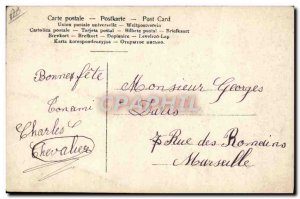 Carte postale — Postkarte — Post Card
Union postale universelle — Weltpostverein
Cartolina postale — Tarjeta postal — Briefkaart
Brevkort — Brefkort — Dopisnice — Levelező-Lap
Karta korespondencyjna — Открытое письмо.
Bonne fête
Tonami
Charles
Chevalier
Monsieur Georges
Paris
7 Rue des Romains
Marseille